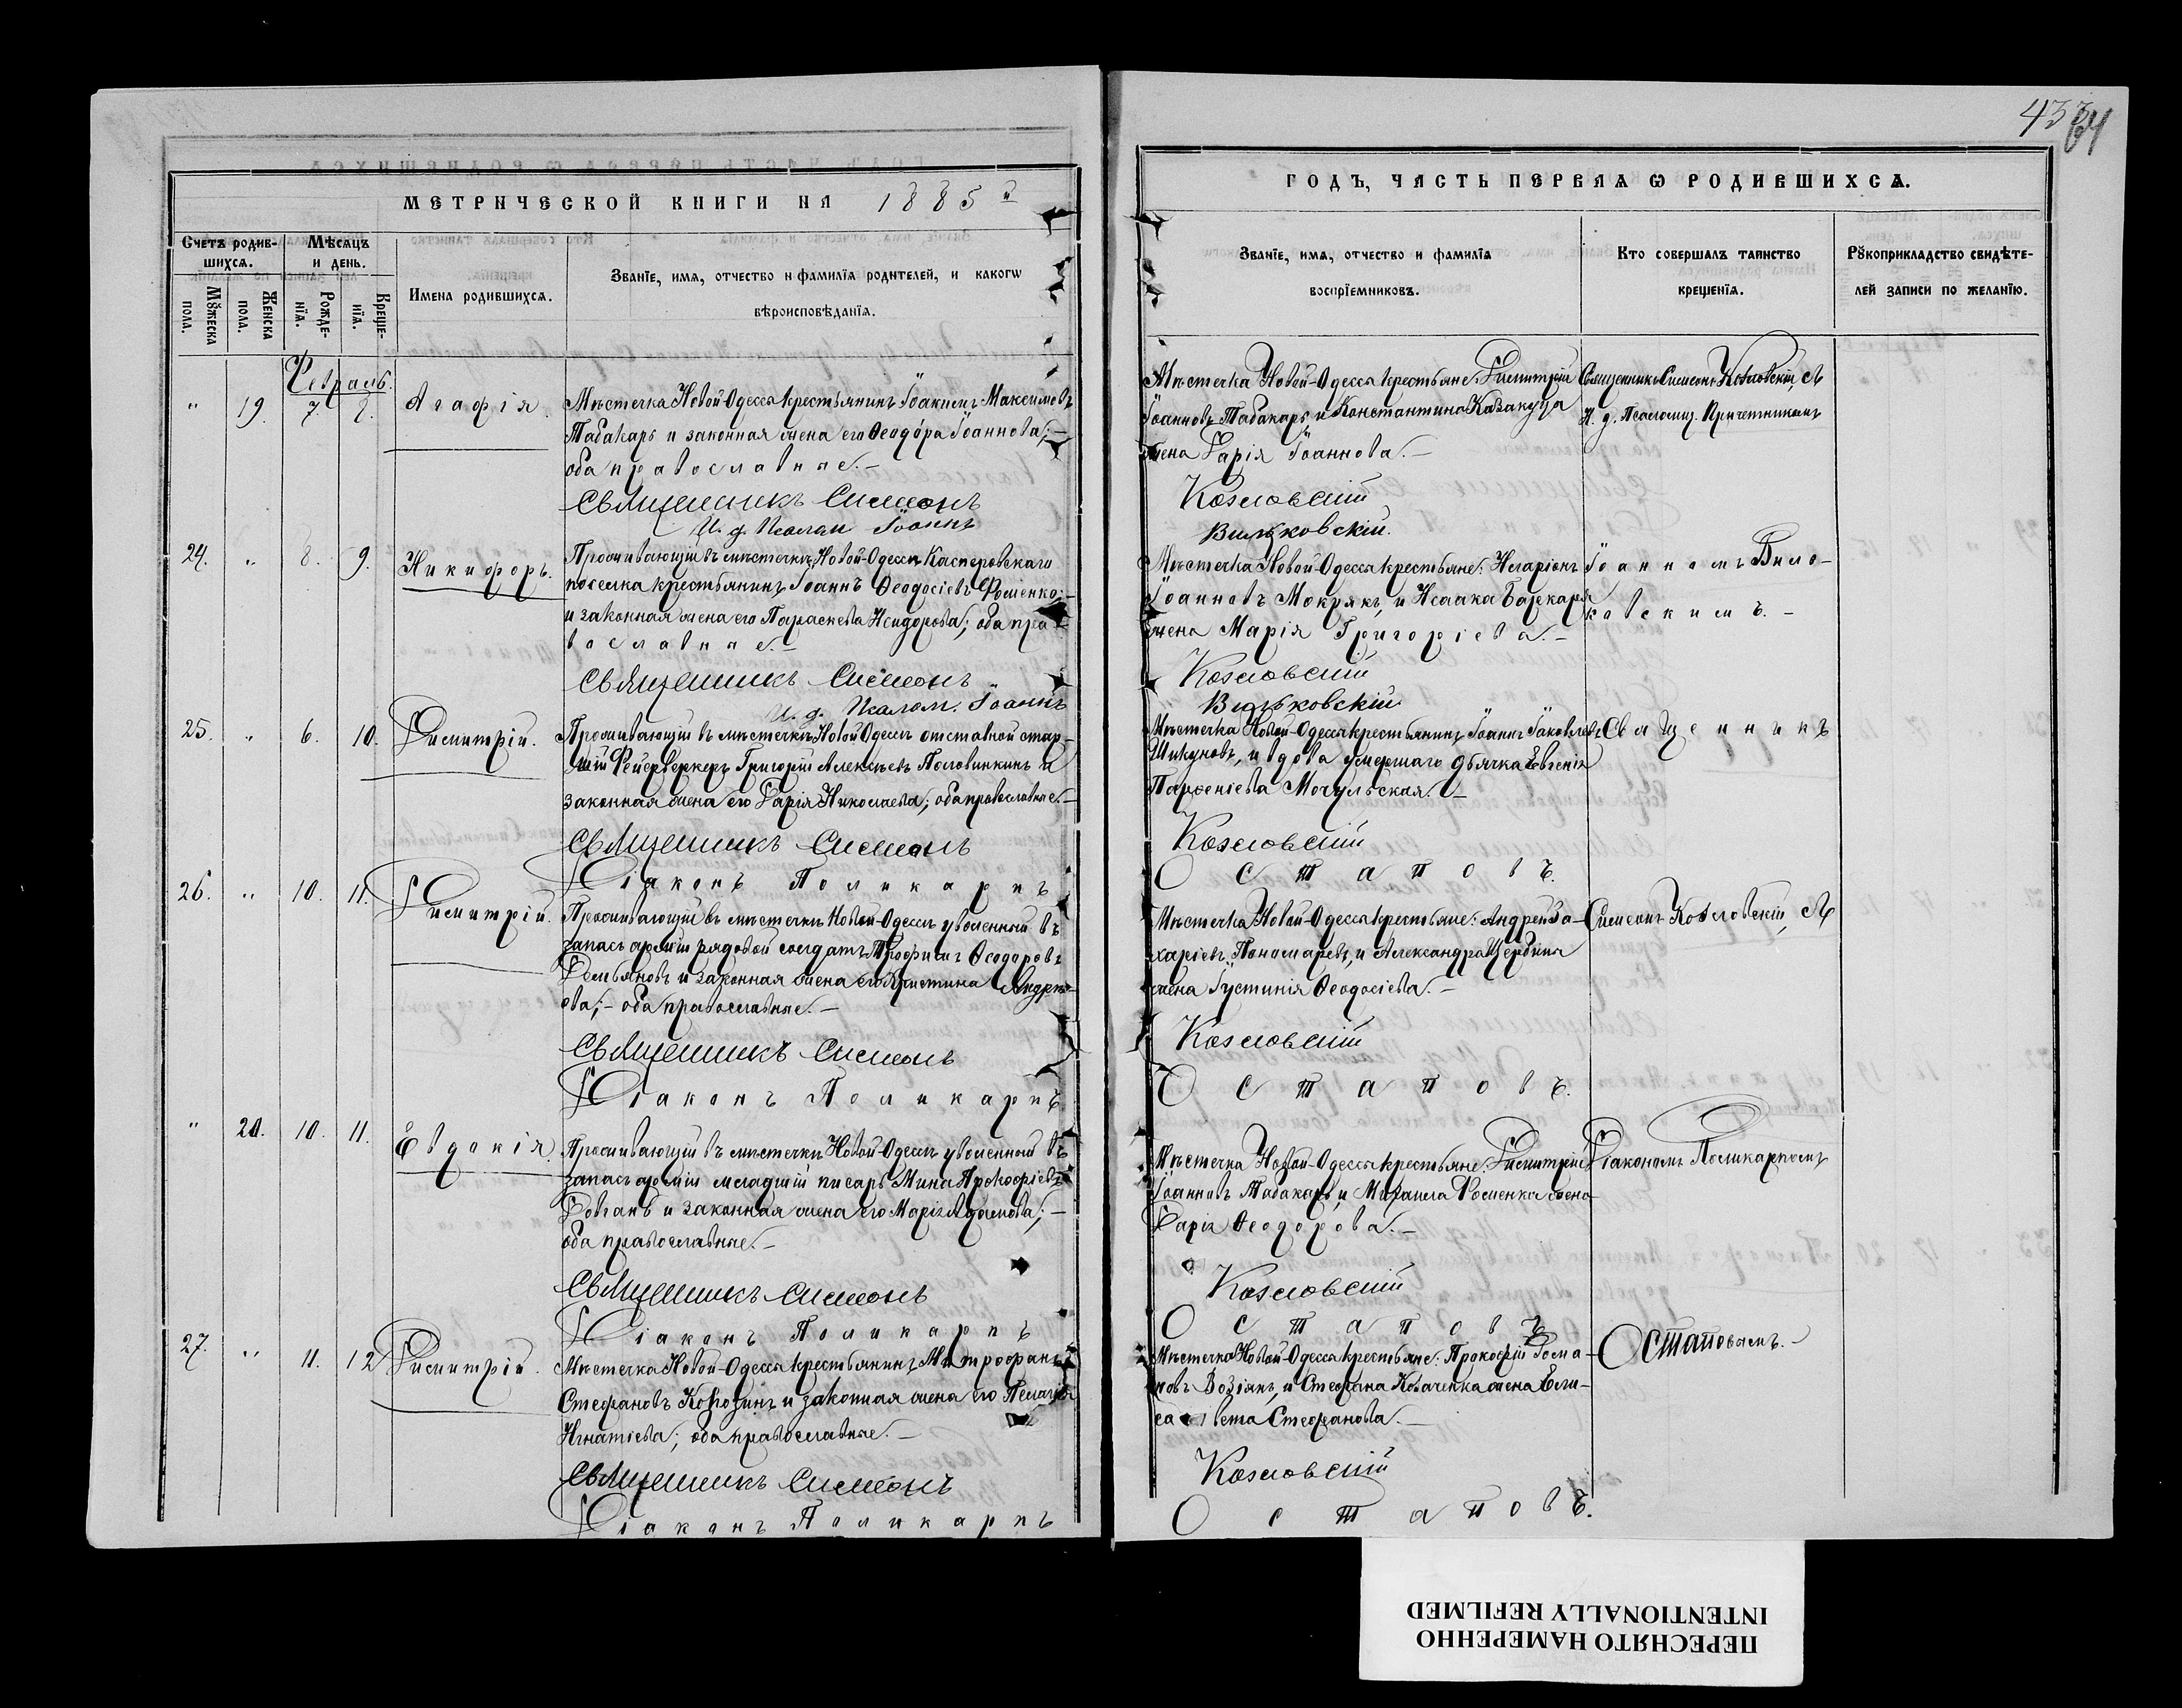 43 64
МЕТРИЧЕСКОЙ КНИГИ НА 1885й
Счетъ родив-
шихся.
Мѣсяцъ
и день.
Мꙋжеска
пола.
Женска
пола.
Рожде-
нїя.
Креще-
нїя.
Имена родившихся.
Званїе, имя, отчество и фамилїя родителей, и какогѡ
вѣроисповѣданїя.
Февраль.
" 19. 7. 8. Агафія.
Мѣстечка Новой-Одесса крестьянинъ Іоакимъ Максимовъ
Табакарь и законная жена его Ѳеодора Іоаннова; –
оба православные. –
Священникъ Симеонъ
И. д. Псалом Іоаннъ
24. " 8. 9. Никифоръ.
Проживающій въ мѣстечкѣ Новой-Одессѣ Касперовскаго
поселка крестьянинъ Іоаннъ Ѳеодосіевъ Фоменко; –
и законная жена его Параскева Исидорова; оба пра-
вославные. –
Священникъ Симеонъ
И. д. Псалом. Іоаннъ
25. " 6. 10. Димитрій.
Проживающій въ мѣстечкѣ Новой Одессѣ отставной стар-
шій Фейерверкеръ Григорій Алексѣевъ Половинкинъ и
законная жена его Дарія Николаева; оба православные. –
Священникъ Симеонъ
Діаконъ Поликарпъ
26. " 10. 11. Димитрій.
Проживающій въ мѣстечкѣ Новой-Одессѣ уволенный въ
запасъ арміи рядовой солдатъ Трофимъ Ѳеодоровъ
Демьяновъ и законная жена его Христина Андрѣе-
ва; – оба православные. –
Священникъ Симеонъ
Діаконъ Поликарпъ
" 20. 10. 11. Евдокія.
Проживающій въ мѣстечкѣ Новой-Одессѣ уволенный въ
запасъ арміи младшій писарь Мина Прокофіевъ
Довганъ и законная жена его Марія Адамова; –
оба православные. –
Священникъ Симеонъ
Діаконъ Поликарпъ
27. " 11. 12 Димитрій.
Мѣстечка Новой-Одесса крестьянинъ Митрофанъ
Стефановъ и законная жена его Пелагія
Игнатіева; оба православные. –
Священникъ Симеонъ
Діаконъ Поликарпъ
ГОДЪ, ЧАСТЬ ПЕРВАЯ Ѡ РОДИВШИХСЯ.
Званїе, имя, отчество и фамилїя
воспрїемниковъ.
Кто совершалъ таинство
крещенїя.
Рꙋкоприкладство свидѣте-
лей записи по желанїю.
Мѣстечка Новой-Одесса крестьяне: Димитрій
Іоанновъ Табакарь, и Константина Казакуца
жена Дарія Іоаннова. –
Козловскій
Вильковскій.
Священникъ Симеонъ Козловскій, съ
И. д. Псаломщ. Причетникомъ
Мѣстечка Новой-Одесса крестьяне: Иларіонъ
Іоанновъ Мокрякъ, и Исаака Баркаря
жена Марія Григоріева. –
Козловскій
Вильковскій
Іоанномъ Вило-
ковскимъ. –
Мѣстечка Новой-Одесса крестьянинъ Іоаннъ Іаковлевъ
Шикуновъ, и вдова умершаго дьячка Евгенія
Парѳеніева Мочульская. –
Козловскій
Остаповъ.
Священникъ
Мѣстечка Новой-Одесса крестьяне: Андрей За-
харіевъ Панамаревъ, и Александра Щербина
жена Іустинія Ѳеодосіева. –
Козловскій
Остаповъ.
Симеонъ Козловскій, съ
Мѣстечка Новой-Одесса крестьяне: Димитрій
Іоанновъ Табакарь, и Михаила Фоменка жена
Дарія Ѳеодорова. –
Козловскій
Остаповъ
Діакономъ Поликарпомъ
Мѣстечка Новой-Одесса крестьяне: Прокофій Рома-
новъ Возіянъ, и Стефана Козаченка жена Ели-
савета Стефанова. –
Козловскій
Остаповъ.
Остаповымъ. –
ПЕРЕСНЯТО НАМЕРЕННО
INTENTIONALLY REFILMED